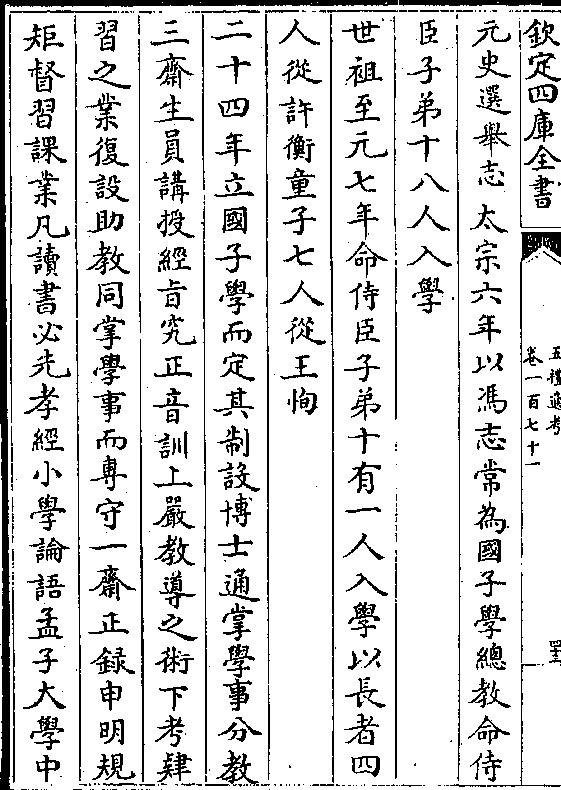 欽定四庫全書
五禮通考
卷一百七十一
元史選舉志太宗六年以馮志常為國子學總教命侍
臣子弟十八人入學
世祖至元七年命侍臣子弟十有一人入學以長者四
人從許衡童子七人從王恂
二十四年立國子學而定其制設博士通掌學事分教
三齋生員講授經旨究正音訓上嚴教導之術下考肄
習之業復設助教同掌學事而專守一齋正錄申明規
矩督習課業凡讀書必先孝經小學論語孟子大學中